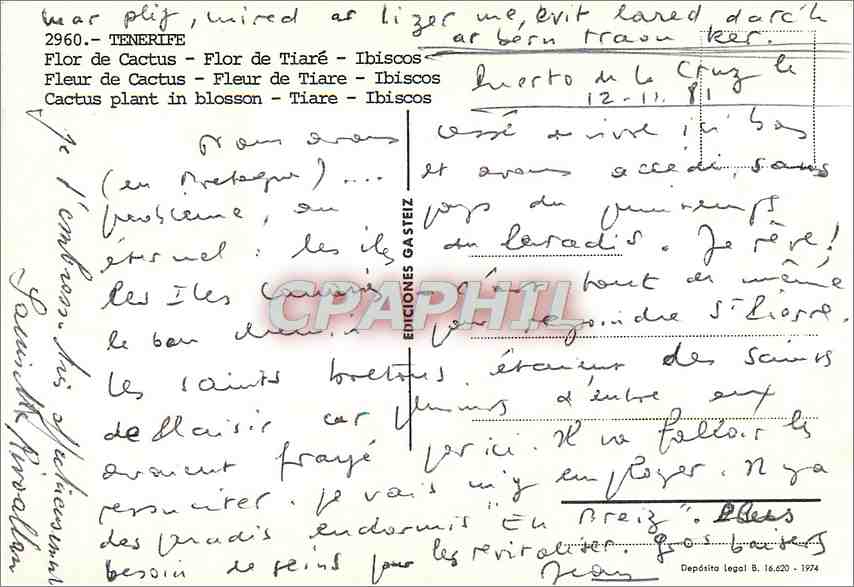 mar plij, mired ar lizer me, evit lared darc'h
ar born traou ker.
2960.- TENERIFE
Flor de Cactus - Flor de Tiaré - Ibiscos
Fleur de Cactus - Fleur de Tiare - Ibiscos
Cactus plant in blosson - Tiare - Ibiscos
Puerto de la Cruz le
12-11.81
Nous avons cessé de vivre ici bas
(en Bretagne).... et avons accédé, sans
problème, au pays du printemps
éternel : les îles du Paradis. Je rêve!
Les Iles Canaries c'est tout de même
le bon chemin pour rejoindre St Pierre.
Les saints bretons étaient des saints
de Plaisir car plusieurs d'entre eux
avaient frayé par ici. Il va falloir les
ressusciter. je vais m'y employer. Il y a
des paradis endormis "En Breiz".
besoin de seins pour les revitaliser. Gros baisers
Jean
Je t'embrasse très affectueusement
EDICIONES GASTEIZ
Depósito Legal B. 16.620 - 1974
CPAPHIL